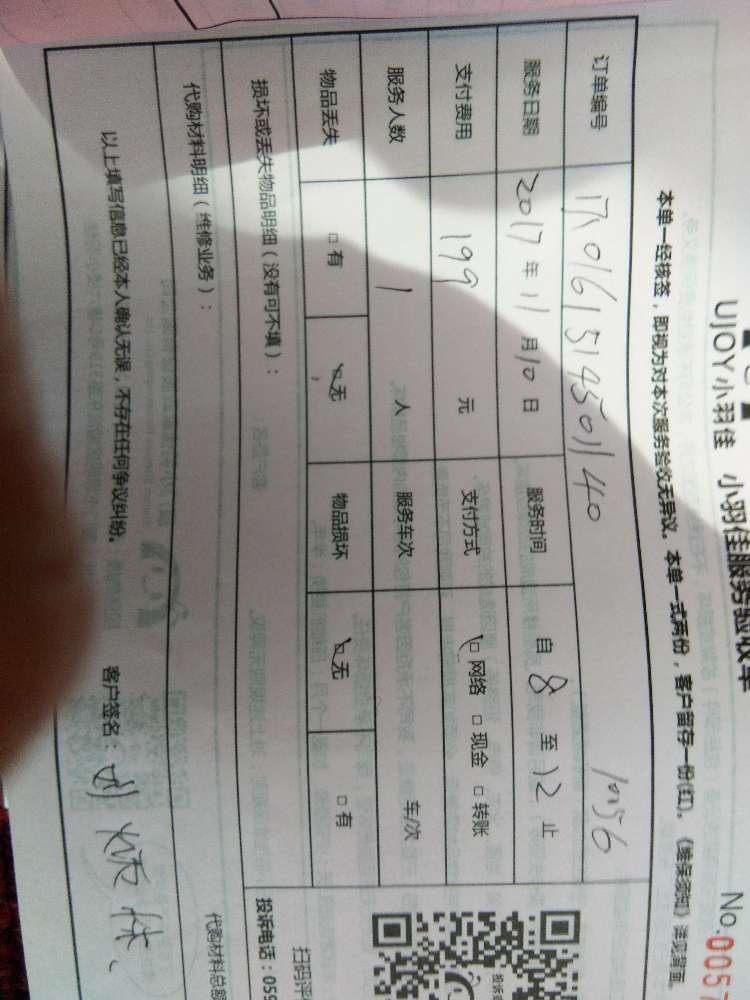 UJOY小羽佳 小羽佳服务验收单
No.0057
本单一经核签，即视为对本次服务验收无异议。本单一式两份，客户留存一份(红)。《维保须知》详见背面。
订单编号 170161514501140 10156
服务日期 2017年11月10日 服务时间 自8至12止
支付费用 199元 支付方式 □网络 □现金 □转账
服务人数 1人 服务车次 车/次
物品丢失 □有 □无 物品损坏 □无 □有
损坏或丢失物品明细（没有可不填）：
代购材料明细（维修业务）：
代购材料总额
以上填写信息已经本人确认无误，不存在任何争议纠纷。 客户签名：
扫码评
投诉电话：059